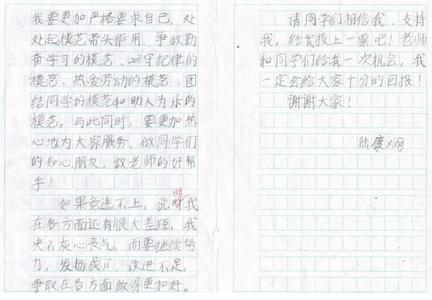 我要更加严格要求自己，处
处起模范带头作用，争做勤
奋学习的模范、遵守纪律的
模范、热爱劳动的模范、团
结同学的模范和助人为乐的
模范。与此同时，要更加热
心地为大家服务，做同学们
的知心朋友，做老师的好帮
手！
如果竞选不上，说明我
在各方面还有很大差距，我
决不灰心丧气，而要继续努
力，发扬成绩，改进不足，
争取在各方面做得更加好。
请同学们相信我、支持
我，给我投上一票吧！老师
和同学们给我一次机会，我
一定会给大家十分的回报！
谢谢大家！
陆康